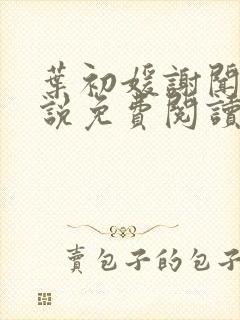 葉初媛謝聞
說免費閱讀
賣包子的包子